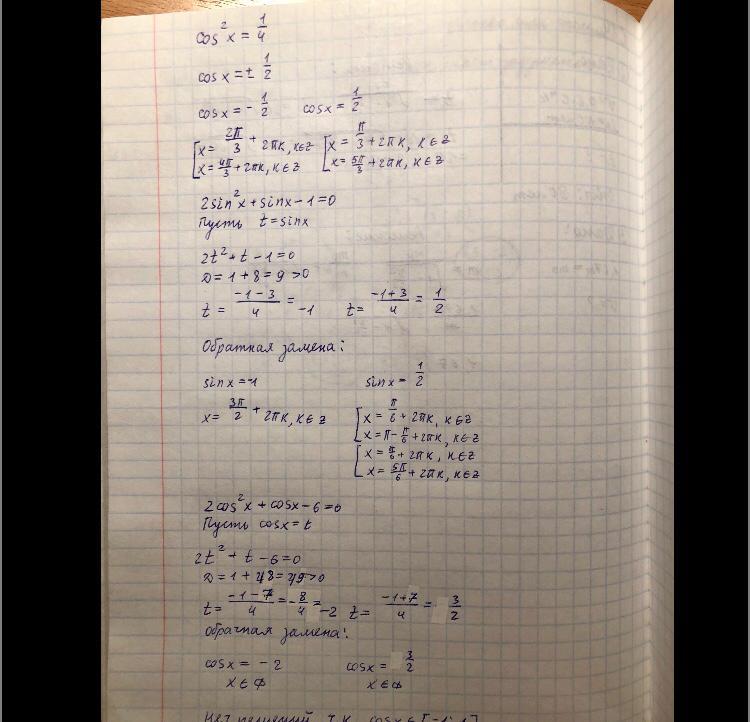 cos²x = 1/4
cosx = ± 1/2
cosx = - 1/2 cosx = 1/2
[x = 2π/3 + 2πk, k∈Z [x = π/3 + 2πk, k∈Z
[x = 4π/3 + 2πk, k∈Z [x = 5π/3 + 2πk, k∈Z
2sin²x + sinx - 1 = 0
Пусть t = sinx
2t² + t - 1 = 0
D = 1 + 8 = 9 > 0
t = (-1 - 3)/4 = -1 t = (-1 + 3)/4 = 1/2
Обратная замена:
sinx = -1 sinx = 1/2
x = 3π/2 + 2πk, k∈Z [x = π/6 + 2πk, k∈Z
[x = π - π/6 + 2πk, k∈Z
[x = π/6 + 2πk, k∈Z
[x = 5π/6 + 2πk, k∈Z
2cos²x + cosx - 6 = 0
Пусть cosx = t
2t² + t - 6 = 0
D = 1 + 48 = 49 > 0
t = (-1 - 7)/4 = -8/4 = -2 t = (-1 + 7)/4 = 3/2
обратная замена:
cosx = -2 cosx = 3/2
x∈∅ x∈∅
Нет решений, т.к. cosx∈[-1; 1]